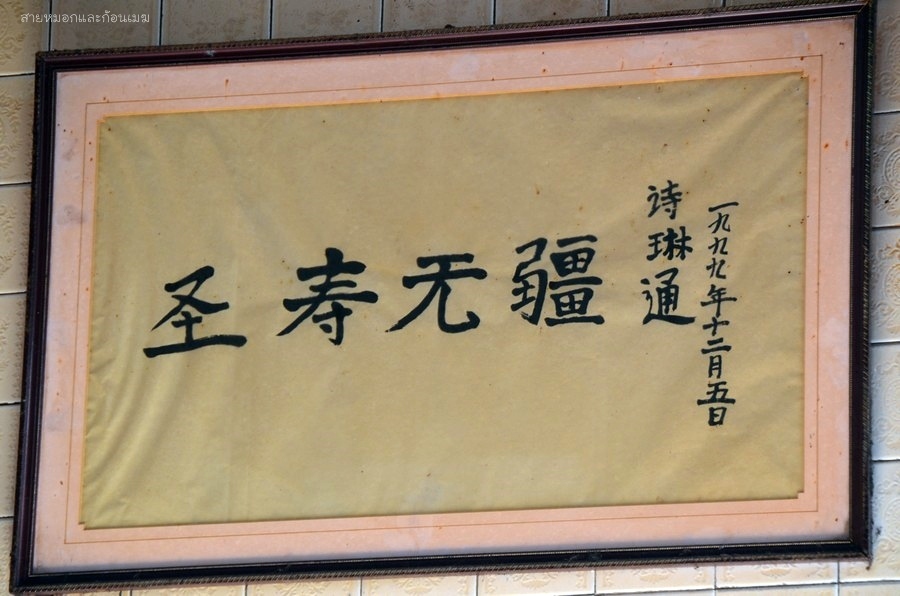 สายหมอกและก้อนเมฆ
圣寿无疆
诗琳通
一九九九年十二月五日